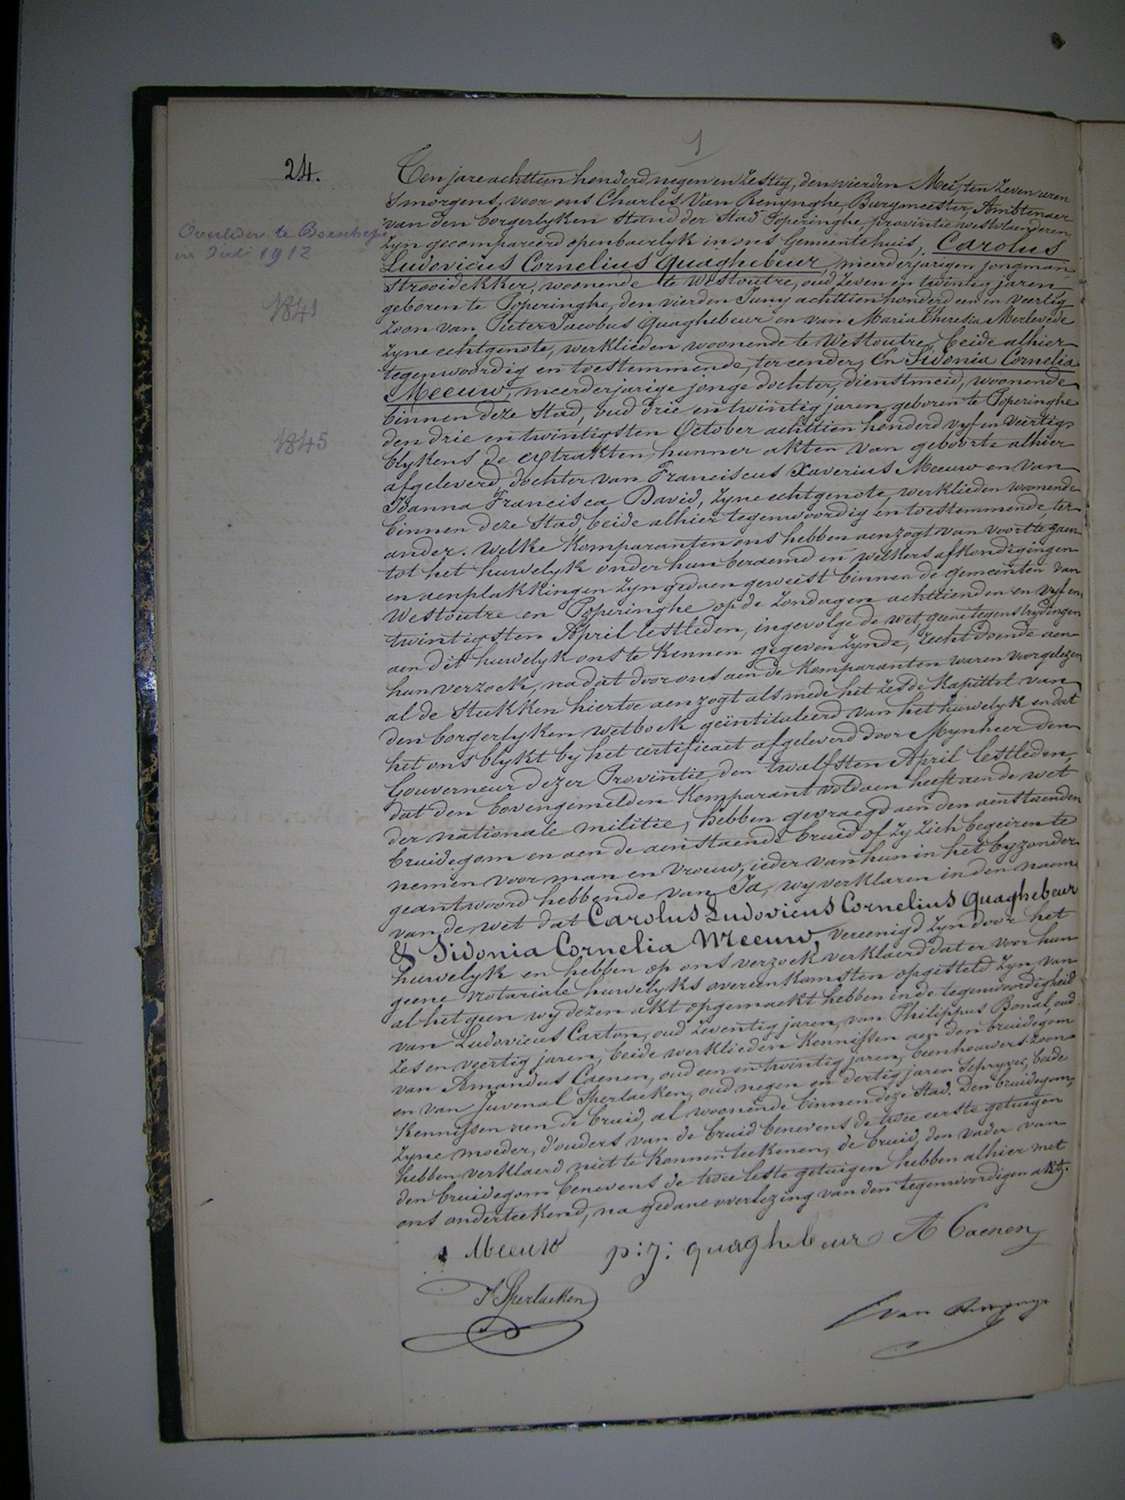 1
24.
Ten jare achttien honderd negen en zestig, den vierden Mei, ten zeven uren
smorgens, voor ons Charles Van Renynghe, Burgmeester, Ambtenaer
van den borgerlyken stand der stad Poperinghe, provintie westvlaenderen,
zyn gecompareerd openbaerlyk in ons Gemeentehuis, Carolus
Overleden te Boeschepe
in Juli 1912
Ludovicus Cornelius Quaghebeur, meerderjarigen jongman
Strooidekker, woonende te Westoutre, oud zeven en twintig jaren
geboren te Poperinghe, den vierden Juny achttien honderd een en veertig
1841
zoon van Pieter Jacobus Quaghebeur en van Maria Theresia Merlevede
zyne echtgenote, werklieden woonende te Westoutre, beide alhier
tegenwoordig en toestemmende, ter eender, En Sidonia Cornelia
Meeuw, meerderjarige jonge dochter, dienstmeid, woonende
binnen deze stad, oud drie en twintig jaren, geboren te Poperinghe
den drie en twintigsten October achttien honderd vyf en veertig,
1845
blykens de extrakten hunner akten van geboorte alhier
afgeleverd, dochter van Franciscus Xaverius Meeuw en van
Joanna Francisca David, zyne echtgenote, werklieden woonende
binnen deze stad, beide alhier tegenwoordig en toestemmende, ter
ander. Welke komparanten ons hebben aenzogt van voort te gaen
tot het huwelyk onder hun beraemd en welkers afkondigingen
en aenplakkingen zyn gedaen geweest binnen de gemeenten van
Westoutre en Poperinghe op de zondagen achttienden en vyf en
twintigsten April lestleden, ingevolge de wet, geene tegenstrydingen
aen dit huwelyk ons te kennen gegeven zynde, recht doende aen
hun verzoek, nadat door ons aen de komparanten waren voorgelezen
al de stukken hiertoe aenzogt alsmede het zesde kapittel van
den borgerlyken wetboek geïntituleerd van het huwelyk en dat
het ons blykt by het certificaet afgeleverd door Mynheer den
Gouverneur dezer Provintie, den twalfsten April lestleden,
dat den bovengemelden komparant voldaen heeft aen de wet
der nationale militie, hebben gevraegd aen den aenstaenden
bruidegom en aen de aenstaende bruid of zy zich begeiren te
nemen voor man en vrouw, ieder van hun in het byzonder
geantwoord hebbende van Ja, wy verklaren in den naem
van de wet dat Carolus Ludovicus Cornelius Quaghebeur
& Sidonia Cornelia Meeuw, vereenigd zyn door het
huwelyk en hebben op ons verzoek verklaerd dat er voor hun
geene notariale huwelyks overeenkomsten opgesteld zyn, van
al het geen wy dezen akt opgemaekt hebben in de tegenwoordigheid
van Ludovicus Carton, oud zeventig jaren, van Philippus Bonal, oud
zes en veertig jaren, beide werklieden kennissen aen den bruidegom
van Amandus Caenen, oud een en twintig jaren, beenhouwers zoon
en van Juvenal Sperlaeken, oud negen en dertig jaren Schryver, beide
kennissen aen de bruid, al woonende binnen deze stad. Den bruidegom,
zyne moeder, d'ouders van de bruid benevens de twee eerste getuigen
hebben verklaerd niet te konnen teekenen, de bruid, den vader van
den bruidegom benevens de twee leste getuigen hebben alhier met
ons onderteekend, na gedane overlezing van den tegenwoordigen akt.
S Meeuw p: j: quaghebeur A Caenen
J. Sperlaeken
C Van Renynghe